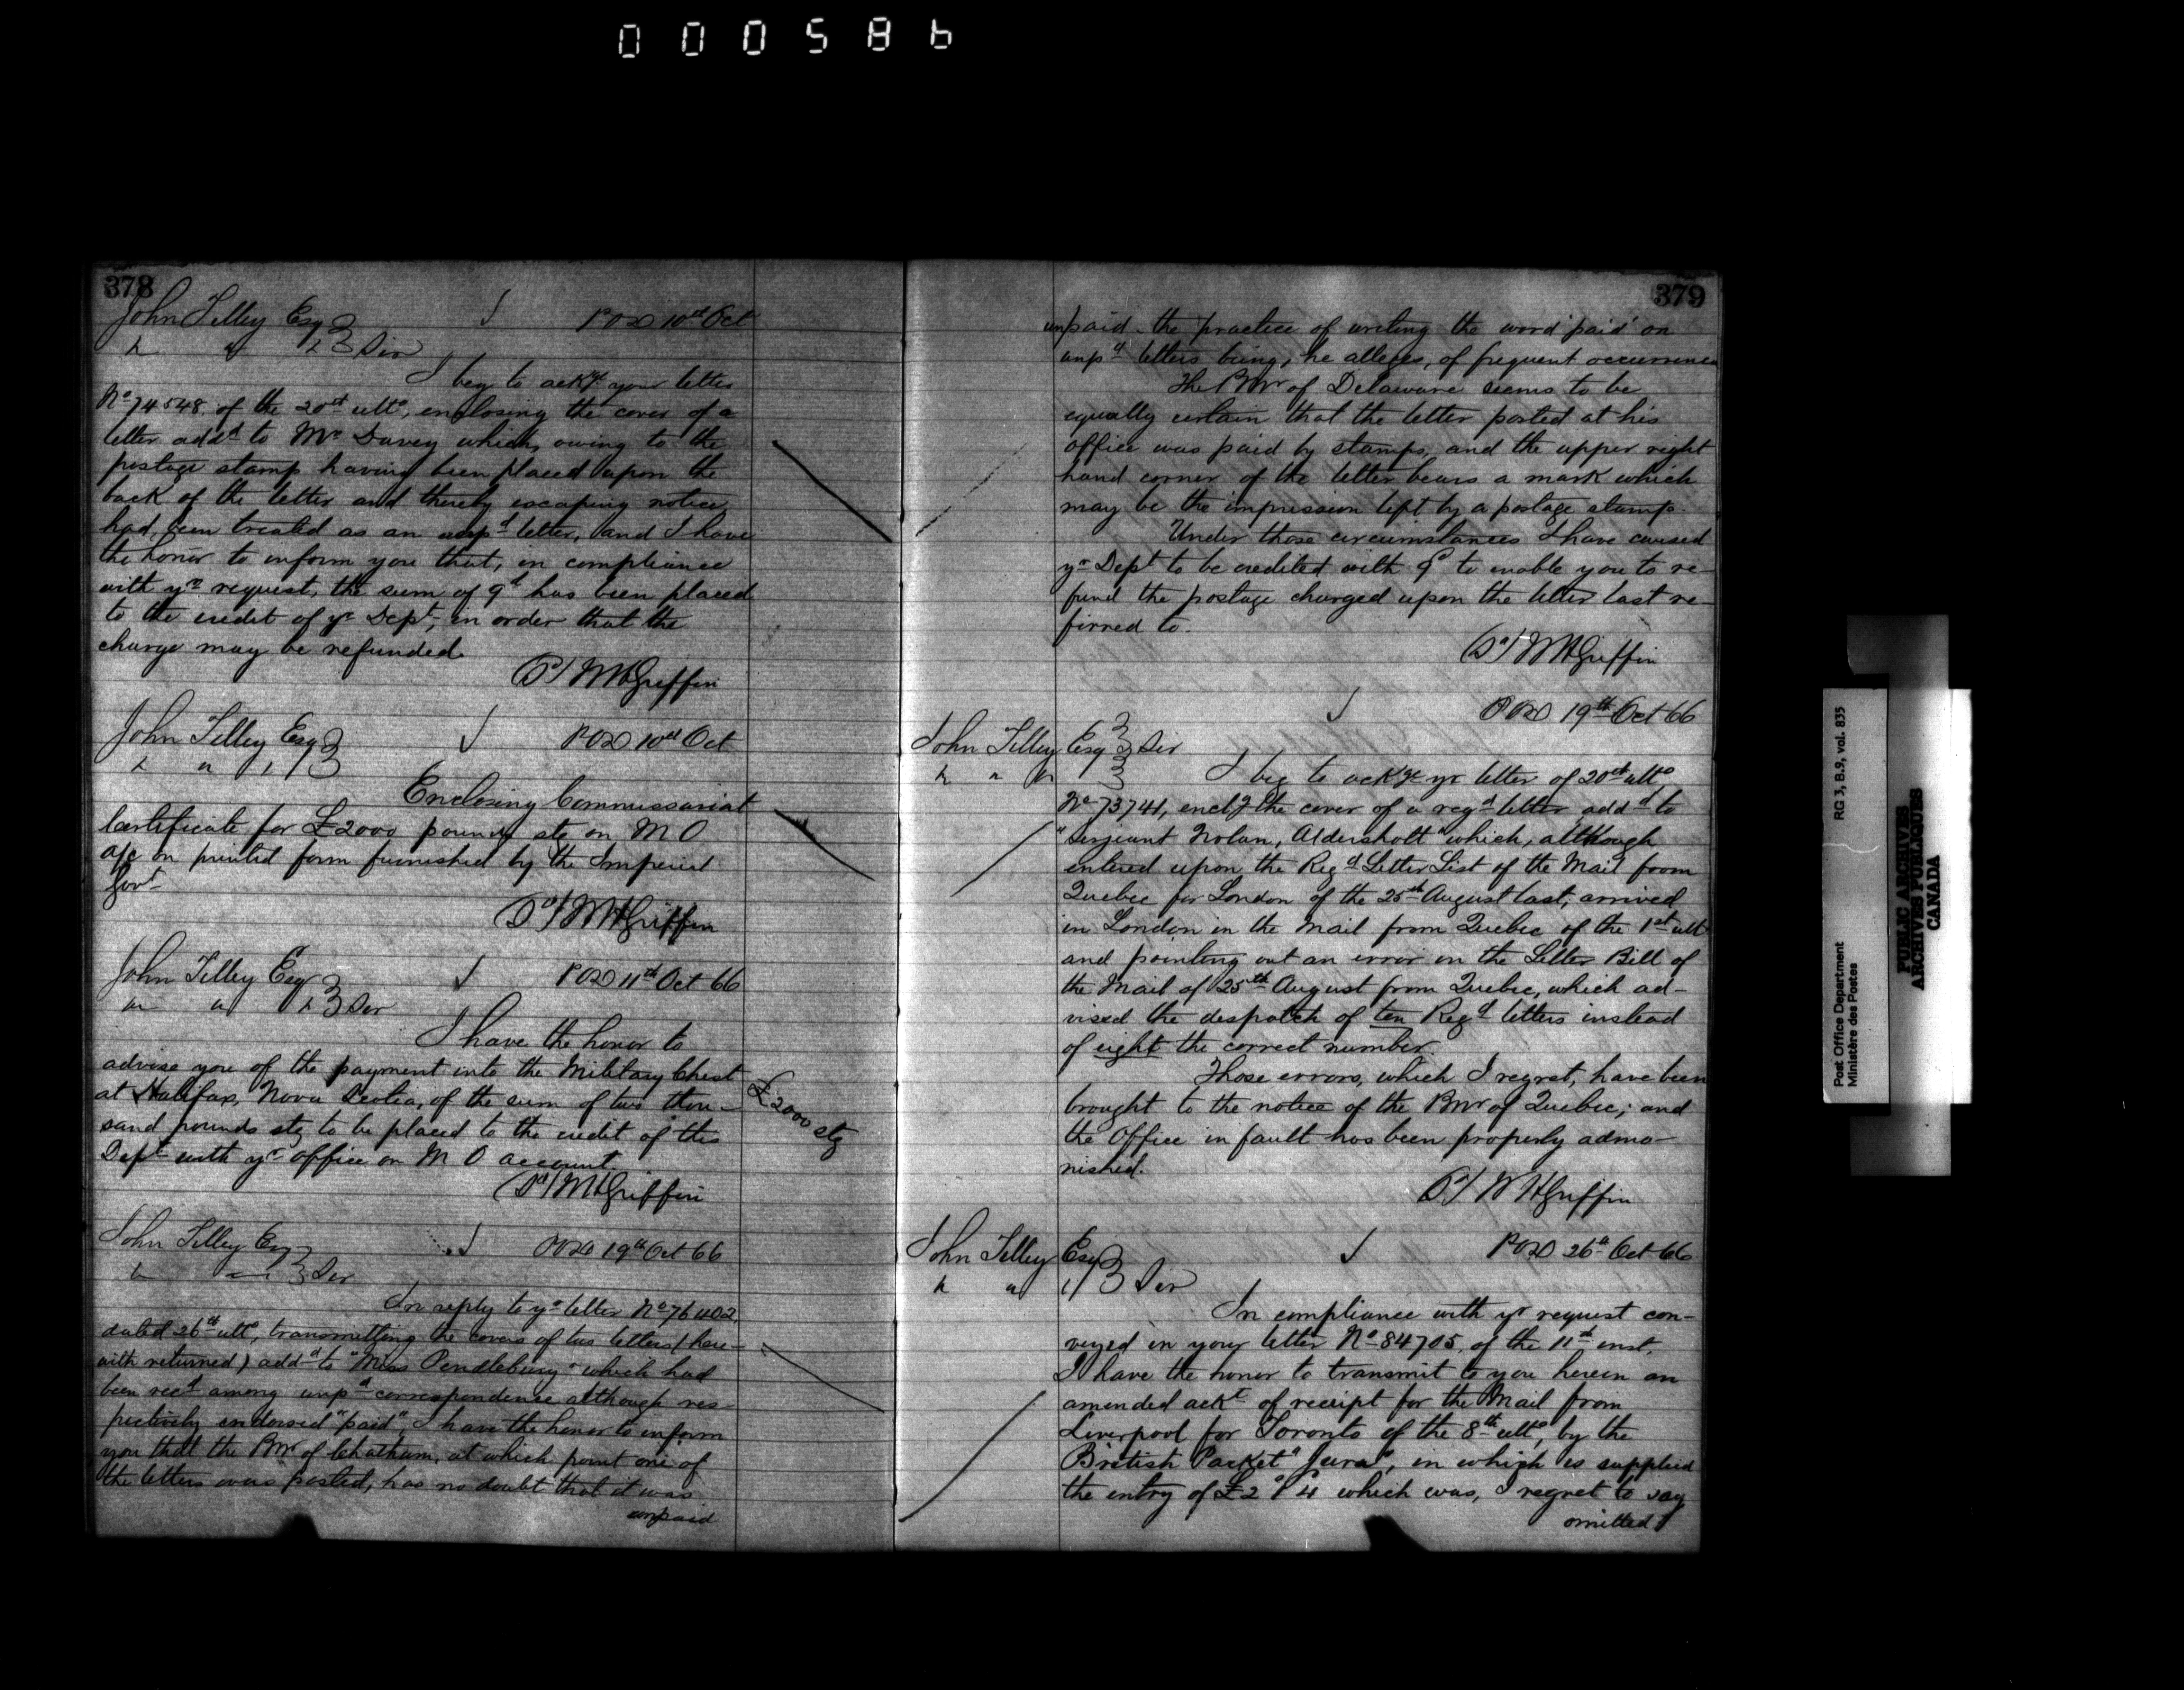 000586
378
John Tilley Esq POD 10th Oct
" " " Sir
I beg to ackge your letter
No 74548 of the 20th ulto, enclosing the cover of a
letter addd to Mr Davey which, owing to the
postage stamp having been placed upon the
back of the letter and thereby escaping notice,
had been treated as an unpd letter, and I have
the honor to inform you that, in compliance
with yr request, the sum of 9d has been placed
to the credit of yr Dept, in order that the
charge may be refunded.
(Sd) W H Griffin
John Tilley Esq POD 10th Oct
" " "
Enclosing Commissariat
Certificate for £2000 pounds stg on M O
a/c on printed form furnished by the Imperial
Govt
(Sd) W H Griffin
John Tilley Esq POD 11th Oct 66
" " " Sir
I have the honor to
advise you of the payment into the Military Chest
at Halifax, Nova Scotia, of the sum of two thou-
sand pounds stg to be placed to the credit of this
Dept with yr office on M O account.
£2000 stg
(Sd) W H Griffin
John Tilley Esq POD 19th Oct 66
" " Sir
In reply to yr letter No 76402,
dated 26th ulto, transmitting the covers of two letters (here-
with returned) addd to "Miss Pendlebury" which had
been recd among unpd correspondence although res-
pectively endorsed "paid", I have the honor to inform
you that the PMr of Chatham, at which point one of
the letters was posted, has no doubt that it was
unpaid
379
unpaid - the practice of writing the word 'paid' on
unpd letters being, he alleges, of frequent occurrence
The PMr of Delaware seems to be
equally certain that the letter posted at his
office was paid by stamps, and the upper right
hand corner of the letter bears a mark which
may be the impression left by a postage stamp.
Under those circumstances I have caused
yr Dept to be credited with 9d to enable you to re-
fund the postage charged upon the letter last re-
firred to.
(Sd) W H Griffin
POD 19th Oct 66
John Tilley Esq Sir
" " " I beg to ackge yr letter of 20th ulto
No 73741, enclg the cover of a regd letter addd to
"Serjeant Nolan, Aldershott" which, although
entered upon the Regd Letter List of the Mail from
Quebec for London of the 25th August last, arrived
in London in the Mail from Quebec of the 1st ulto
and pointing out an error in the Letter Bill of
the Mail of 25th August from Quebec, which ad-
vised the despatch of ten Regd letters instead
of eight the correct number.
Those errors, which I regret, have been
brought to the notice of the PMr of Quebec; and
the Office in fault has been properly admo-
nished.
(Sd) W H Griffin
John Tilley Esq POD 26th Oct 66
" " " Sir
In compliance with yr request con-
veyed in your letter No 84705, of the 11th inst,
I have the honor to transmit to you herein an
amended ackt of receipt for the Mail from
Liverpool for Toronto of the 8th ulto, by the
British Packet "Jura", in which is supplied
the entry of £2 4 which was, I regret to say
omitted
Post Office Department
Ministère des Postes
RG 3, B.9, vol. 835
PUBLIC ARCHIVES
ARCHIVES PUBLIQUES
CANADA